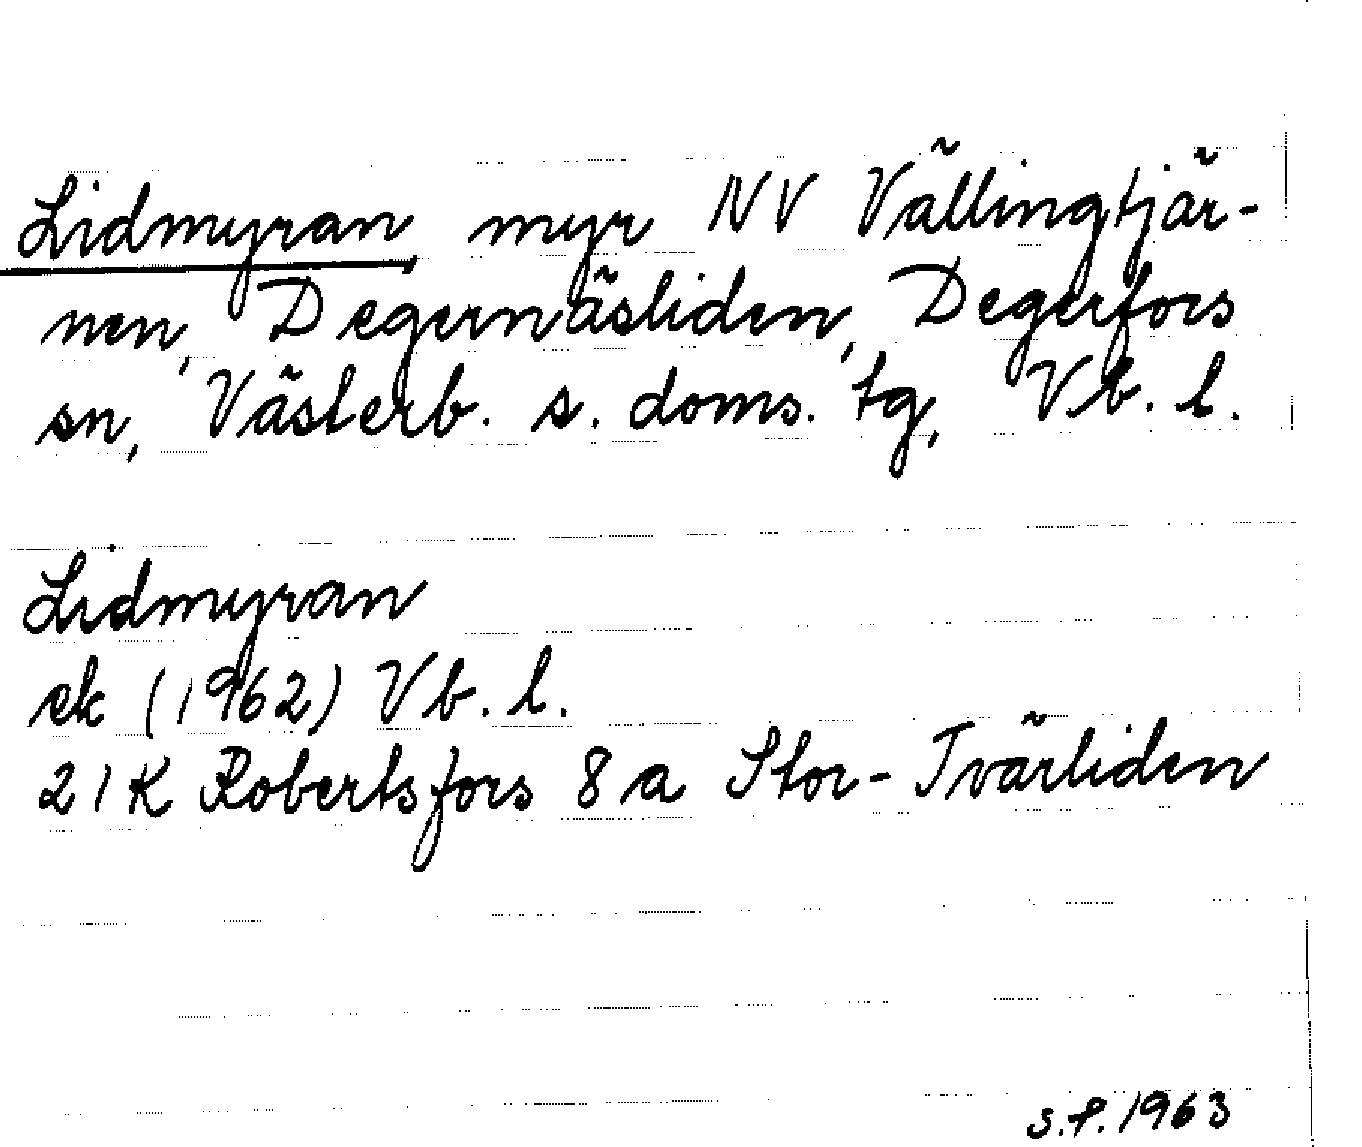 Lidmyran myr NV Vällingtjär-
nen, Degernäsliden, Degerfors
sn, Västerb. s. doms. tg, Vb. l.
Lidmyran
ek (1962) Vb. l.
21K Robertsfors 8a Stor-Tvärliden
S.P. 1963